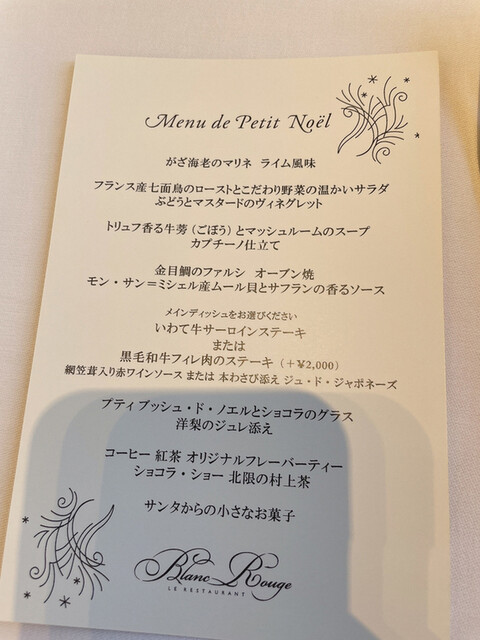 Menu de Petit Noël
がざ海老のマリネ ライム風味
フランス産七面鳥のローストとこだわり野菜の温かいサラダ
ぶどうとマスタードのヴィネグレット
トリュフ香る牛蒡（ごぼう）とマッシュルームのスープ
カプチーノ仕立て
金目鯛のファルシ オーブン焼
モン・サン＝ミシェル産ムール貝とサフランの香るソース
メインディッシュをお選びください
いわて牛サーロインステーキ
または
黒毛和牛フィレ肉のステーキ（＋¥2,000）
網笠茸入り赤ワインソース または 本わさび添え ジュ・ド・ジャポネーズ
プティ ブッシュ・ド・ノエルとショコラのグラス
洋梨のジュレ添え
コーヒー 紅茶 オリジナルフレーバーティー
ショコラ・ショー 北限の村上茶
サンタからの小さなお菓子
Blanc Rouge
LE RESTAURANT